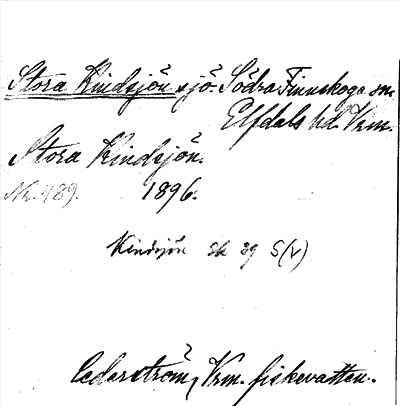 Stora Kindsjön sjö. Södra Finnskoga sn.
Elfdals hd. Vrm.
Stora Kindsjön.
Nr. 489. 1896.
Kindsjön sk sg S(V)
Cederström, Vrm. fiskevatten.